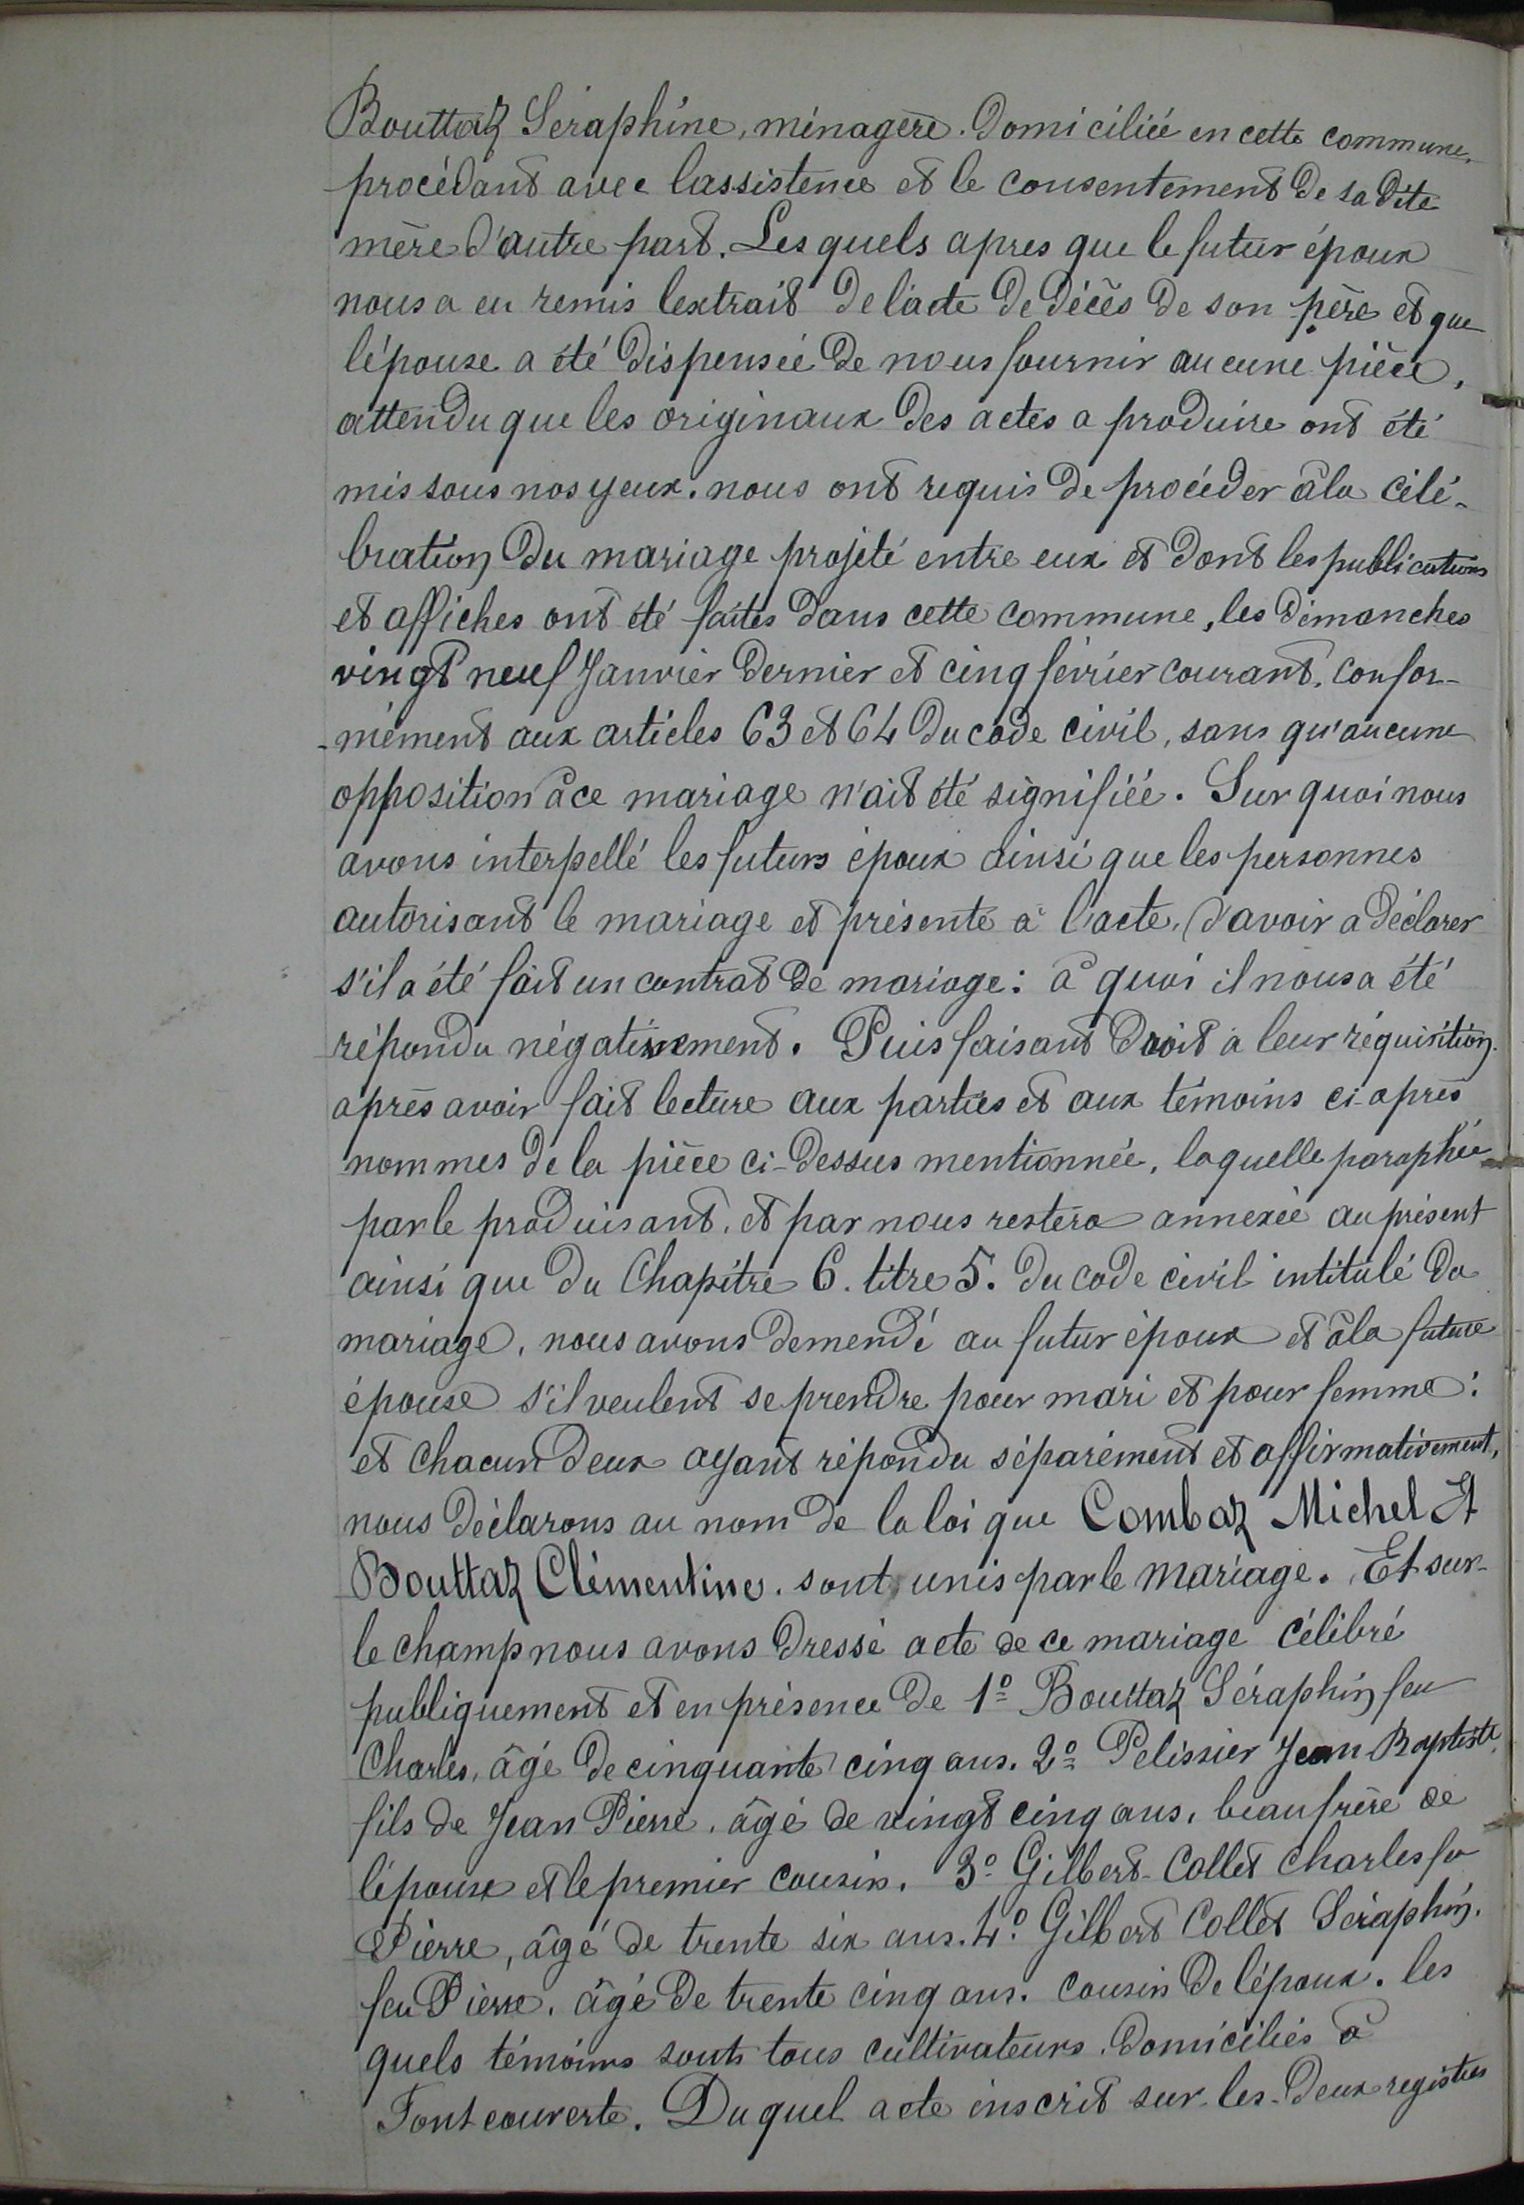 Bouttaz Séraphine, ménagère. Domiciliée en cette commune,
procédant avec lassistence et le consentement de sa dite
mère d'autre part. Les quels apres que le futur époux
nous a eu remis lextrait de l'acte de décès de son père et que
lépouse a été dispensée de nous fournir aucune pièce,
attendu que les originaux des actes a produire ont été
mis sous nos yeux. nous ont requis de procéder à la célé-
bration du mariage projeté entre eux et dont les publications
et affiches ont été faites dans cette commune, les dimanches
vingt neuf Janvier dernier et cinq février courant. confor-
-mément aux articles 63 et 64 du code civil, sans qu'aucune
opposition à ce mariage n'ait été signifiée. Sur quoi nous
avons interpellé les futurs époux ainsi que les personnes
autorisant le mariage et présente à l'acte, d'avoir a déclarer
s'il a été fait un contrat de mariage: à quoi il nous a été
répondu négativement. Puis faisant droit à leur réquisition.
après avoir fait lecture aux parties et aux témoins ci-après
nommes de la pièce ci-dessus mentionnée, laquelle paraphée
par le produisant, et par nous restera annexée au présent
ainsi que du Chapitre 6. titre 5. du code civil intitulé du
mariage, nous avons demendé au futur époux et à la future
épouse s'il veulent se prendre pour mari et pour femme:
et chacun deux ayant répondu séparément et affirmativement,
nous déclarons au nom de la loi que Combaz Michel Et
Bouttaz Clémentine. sont unis par le mariage. Et sur-
le champ nous avons dressé acte de ce mariage célébré
publiquement et en présence de 1º Bouttaz Séraphin feu
Charles, âgé de cinquante cinq ans. 2º Pelissier Jean Baptiste
fils de Jean Pierre, âgé de vingt cinq ans, beau frère de
lépouse et le premier cousin. 3º Gilbert-Collet Charles fu
Pierre, âgé de trente six ans. 4º Gilbert Collet Séraphin.
feu Pierre. âgé de trente cinq ans. cousin de lépoux. les
quels témoins sont tous cultivateurs domiciliés à
Fontcouverte. Du quel acte inscrit sur les deux registres